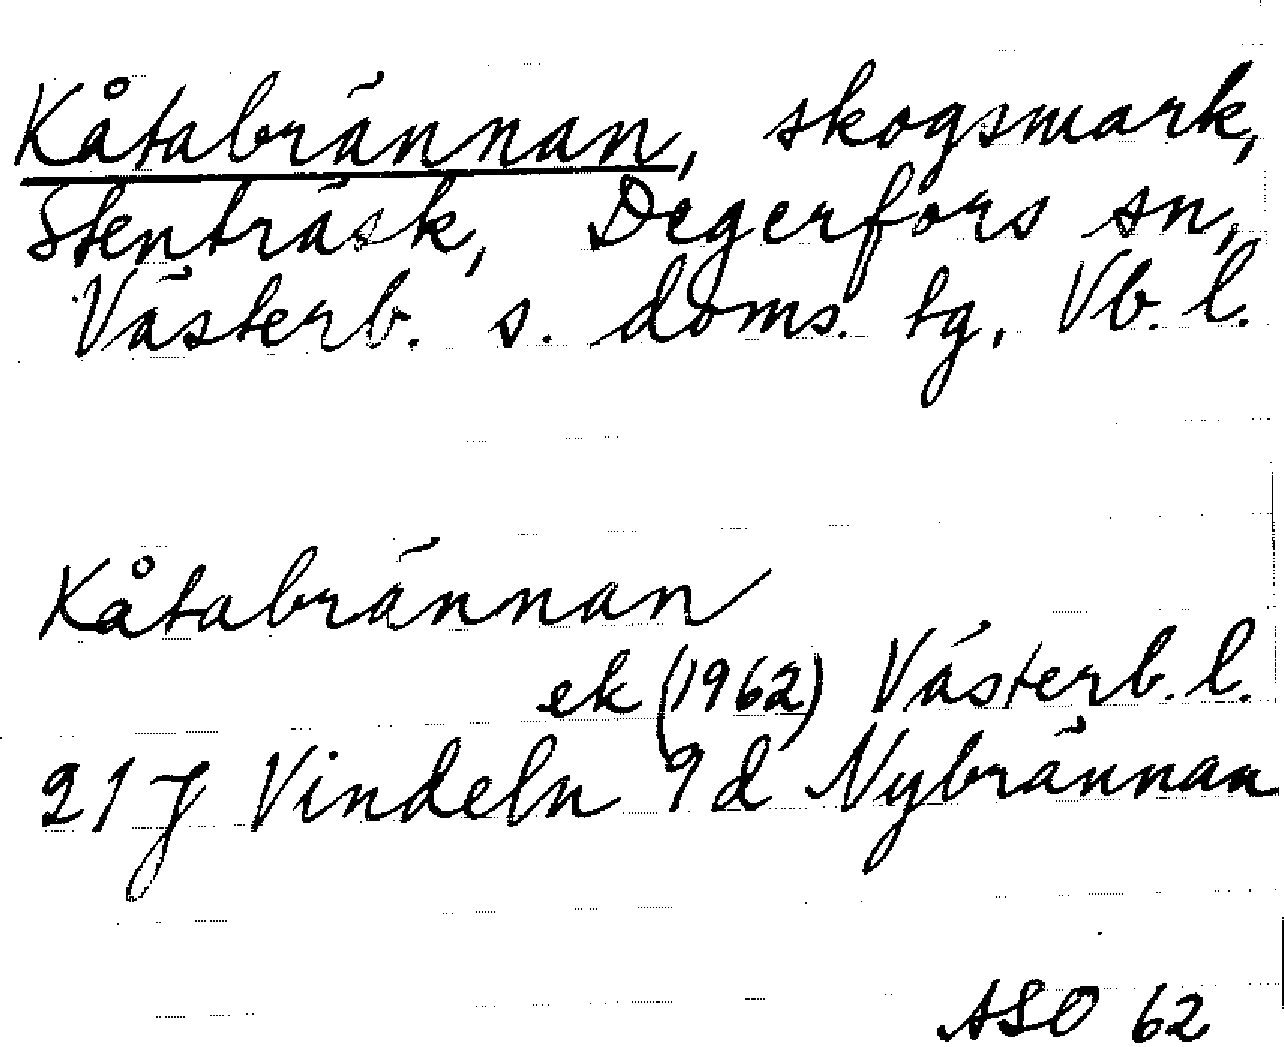 Kåtabrännan, skogsmark,
Stenträsk, Degerfors sn,
Västerb. s. doms. tg, Vb. l.
Kåtabrännan
ek (1962) Västerb. l.
21 J Vindeln 9d Nybrännan
ASO 62